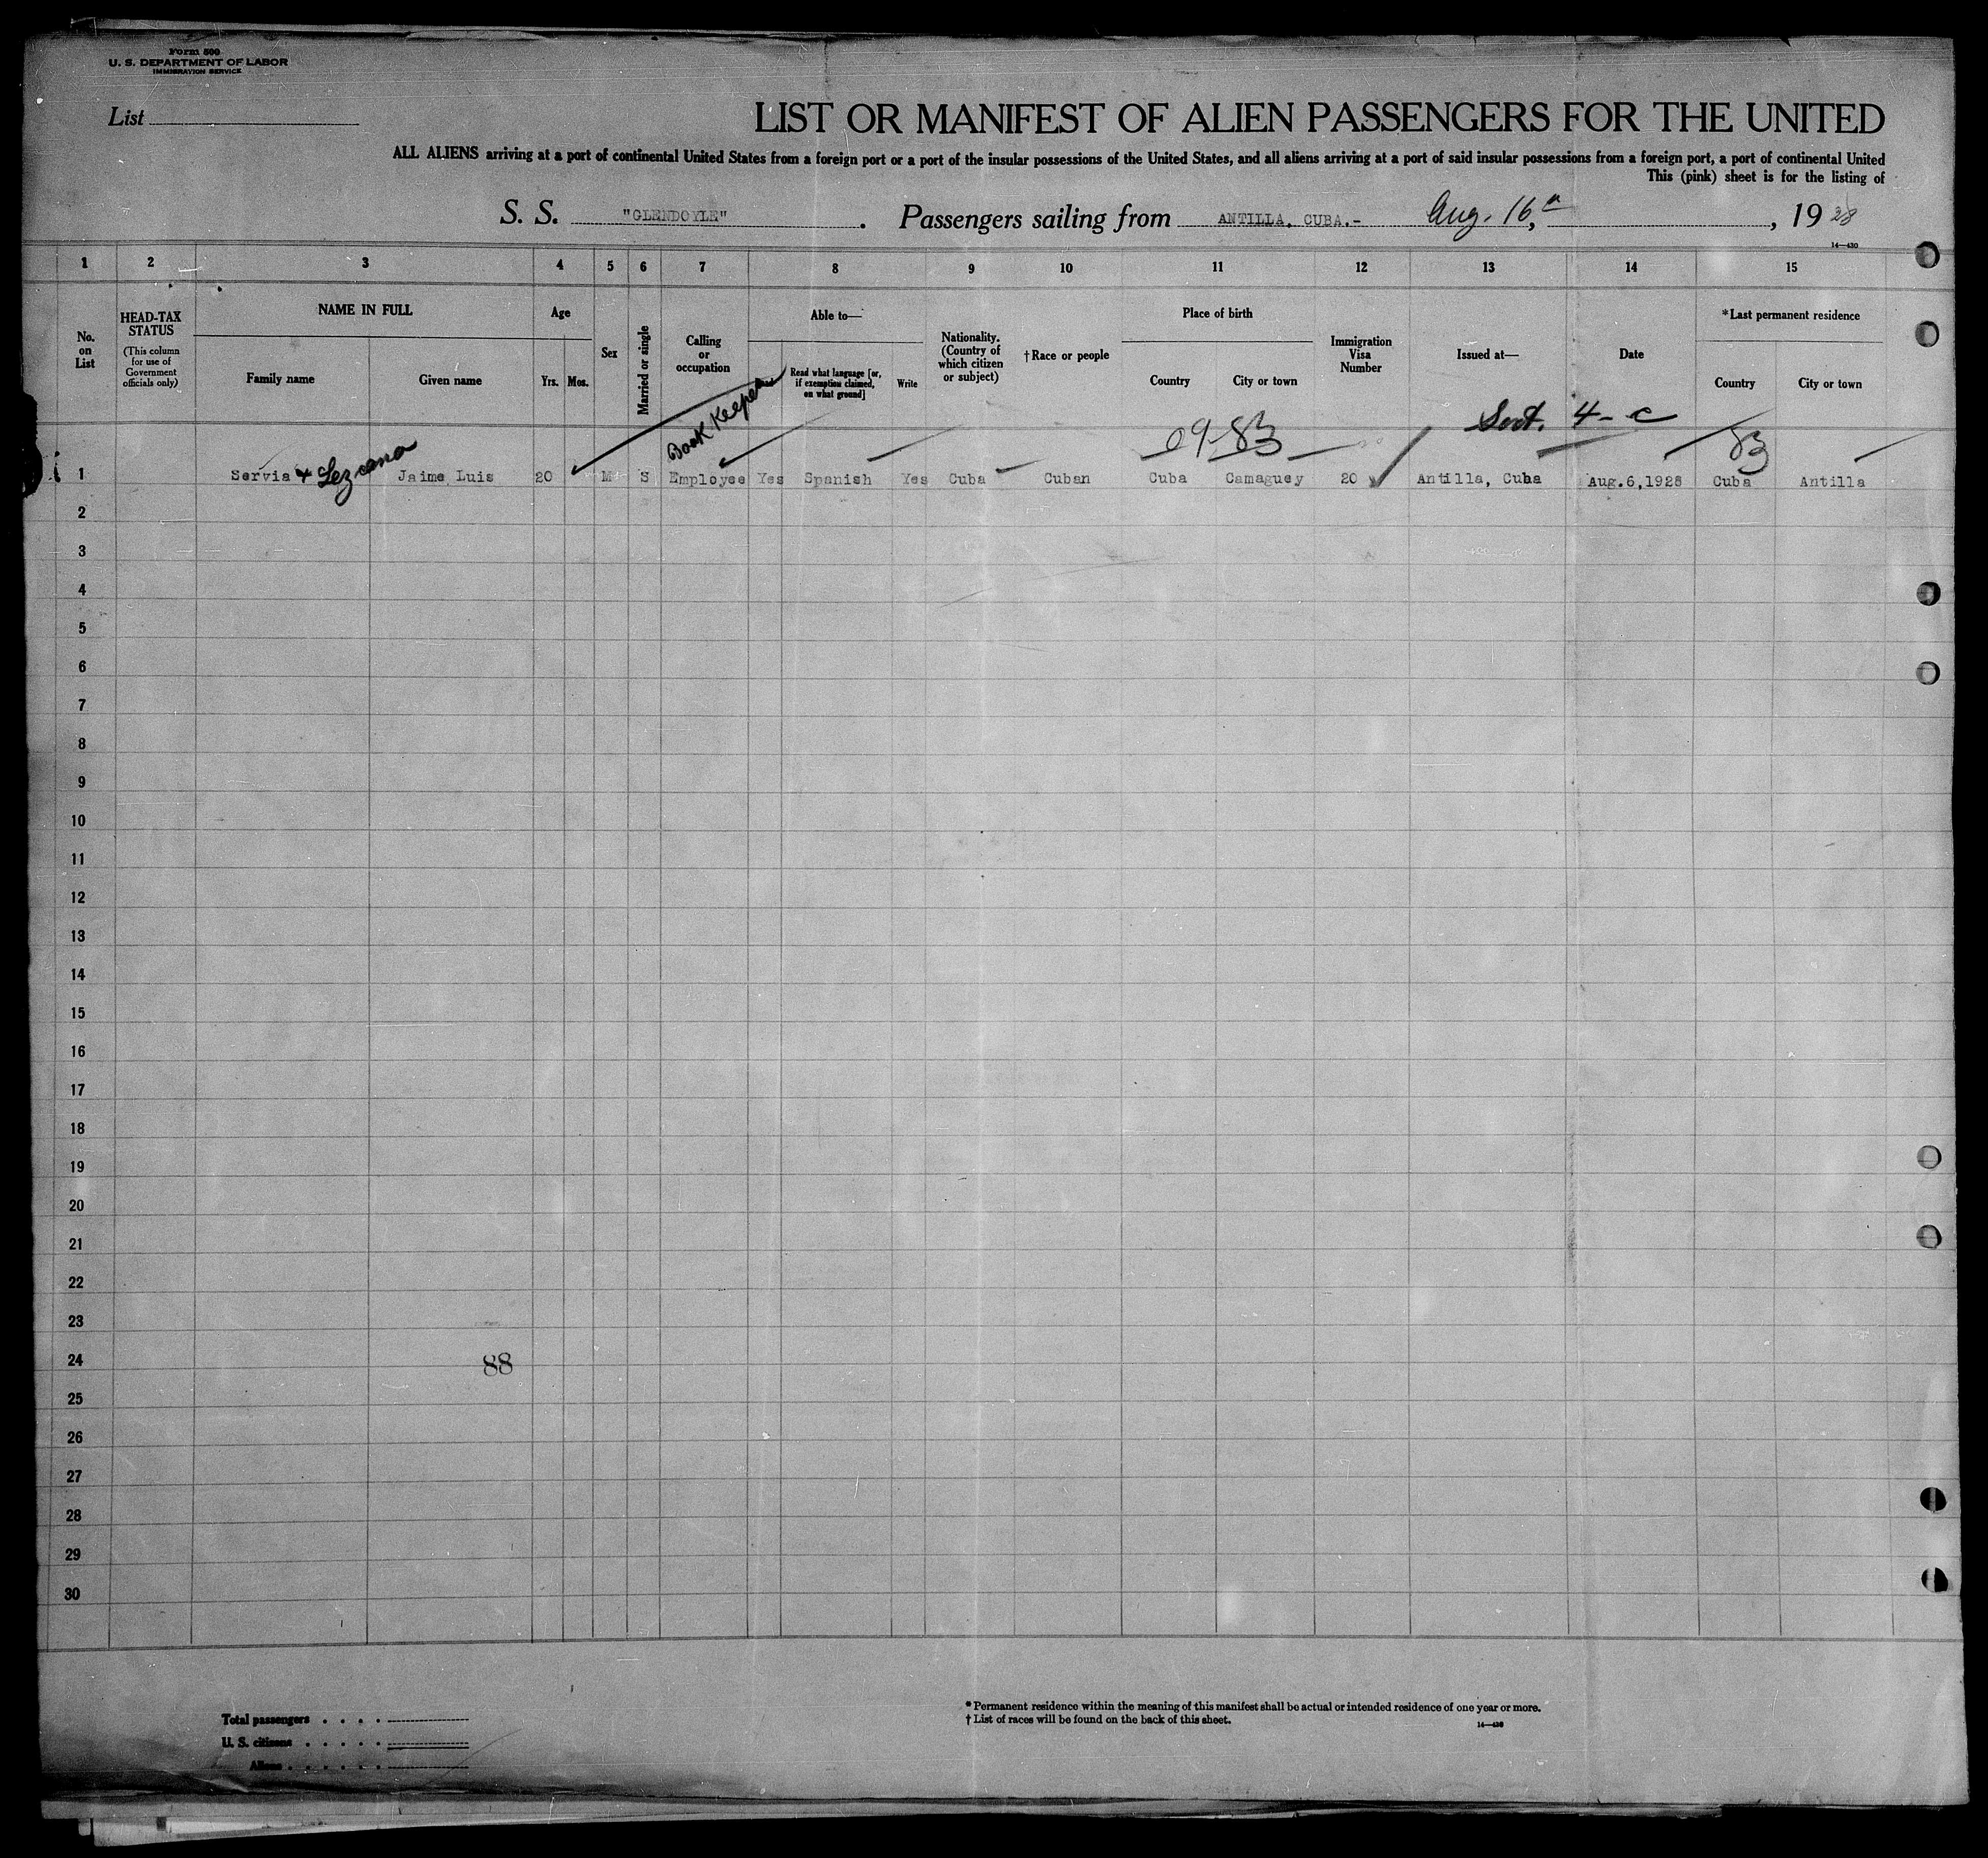 Form 500
U. S. DEPARTMENT OF LABOR
IMMIGRATION SERVICE
List
LIST OR MANIFEST OF ALIEN PASSENGERS FOR THE UNITED
ALL ALIENS arriving at a port of continental United States from a foreign port or a port of the insular possessions of the United States, and all aliens arriving at a port of said insular possessions from a foreign port, a port of continental United
This (pink) sheet is for the listing of
S. S. "GLENDOYLE". Passengers sailing from ANTILLA, CUBA.- Aug. 16, , 1928
14—430
1 2 3 4 5 6 7 8 9 10 11 12 13 14 15
No. on List
HEAD-TAX STATUS
(This column for use of Government officials only)
NAME IN FULL
Family name
Given name
Age
Yrs. Mos.
Sex
Married or single
Calling or occupation
Able to—
Read
Read what language [or, if exemption claimed, on what ground]
Write
Nationality. (Country of which citizen or subject)
†Race or people
Place of birth
Country
City or town
Immigration Visa Number
Issued at—
Date
*Last permanent residence
Country
City or town
Book Keeper
09-83
Sect. 4-c
83
1 Servia y Lezcano Jaime Luis 20 M S Employee Yes Spanish Yes Cuba Cuban Cuba Camaguey 20 Antilla, Cuba Aug.6,1928 Cuba Antilla
2
3
4
5
6
7
8
9
10
11
12
13
14
15
16
17
18
19
20
21
22
23
24 88
25
26
27
28
29
30
Total passengers . . . .
U. S. citizens . . . . .
Aliens . . . . . .
* Permanent residence within the meaning of this manifest shall be actual or intended residence of one year or more.
† List of races will be found on the back of this sheet.
14—430